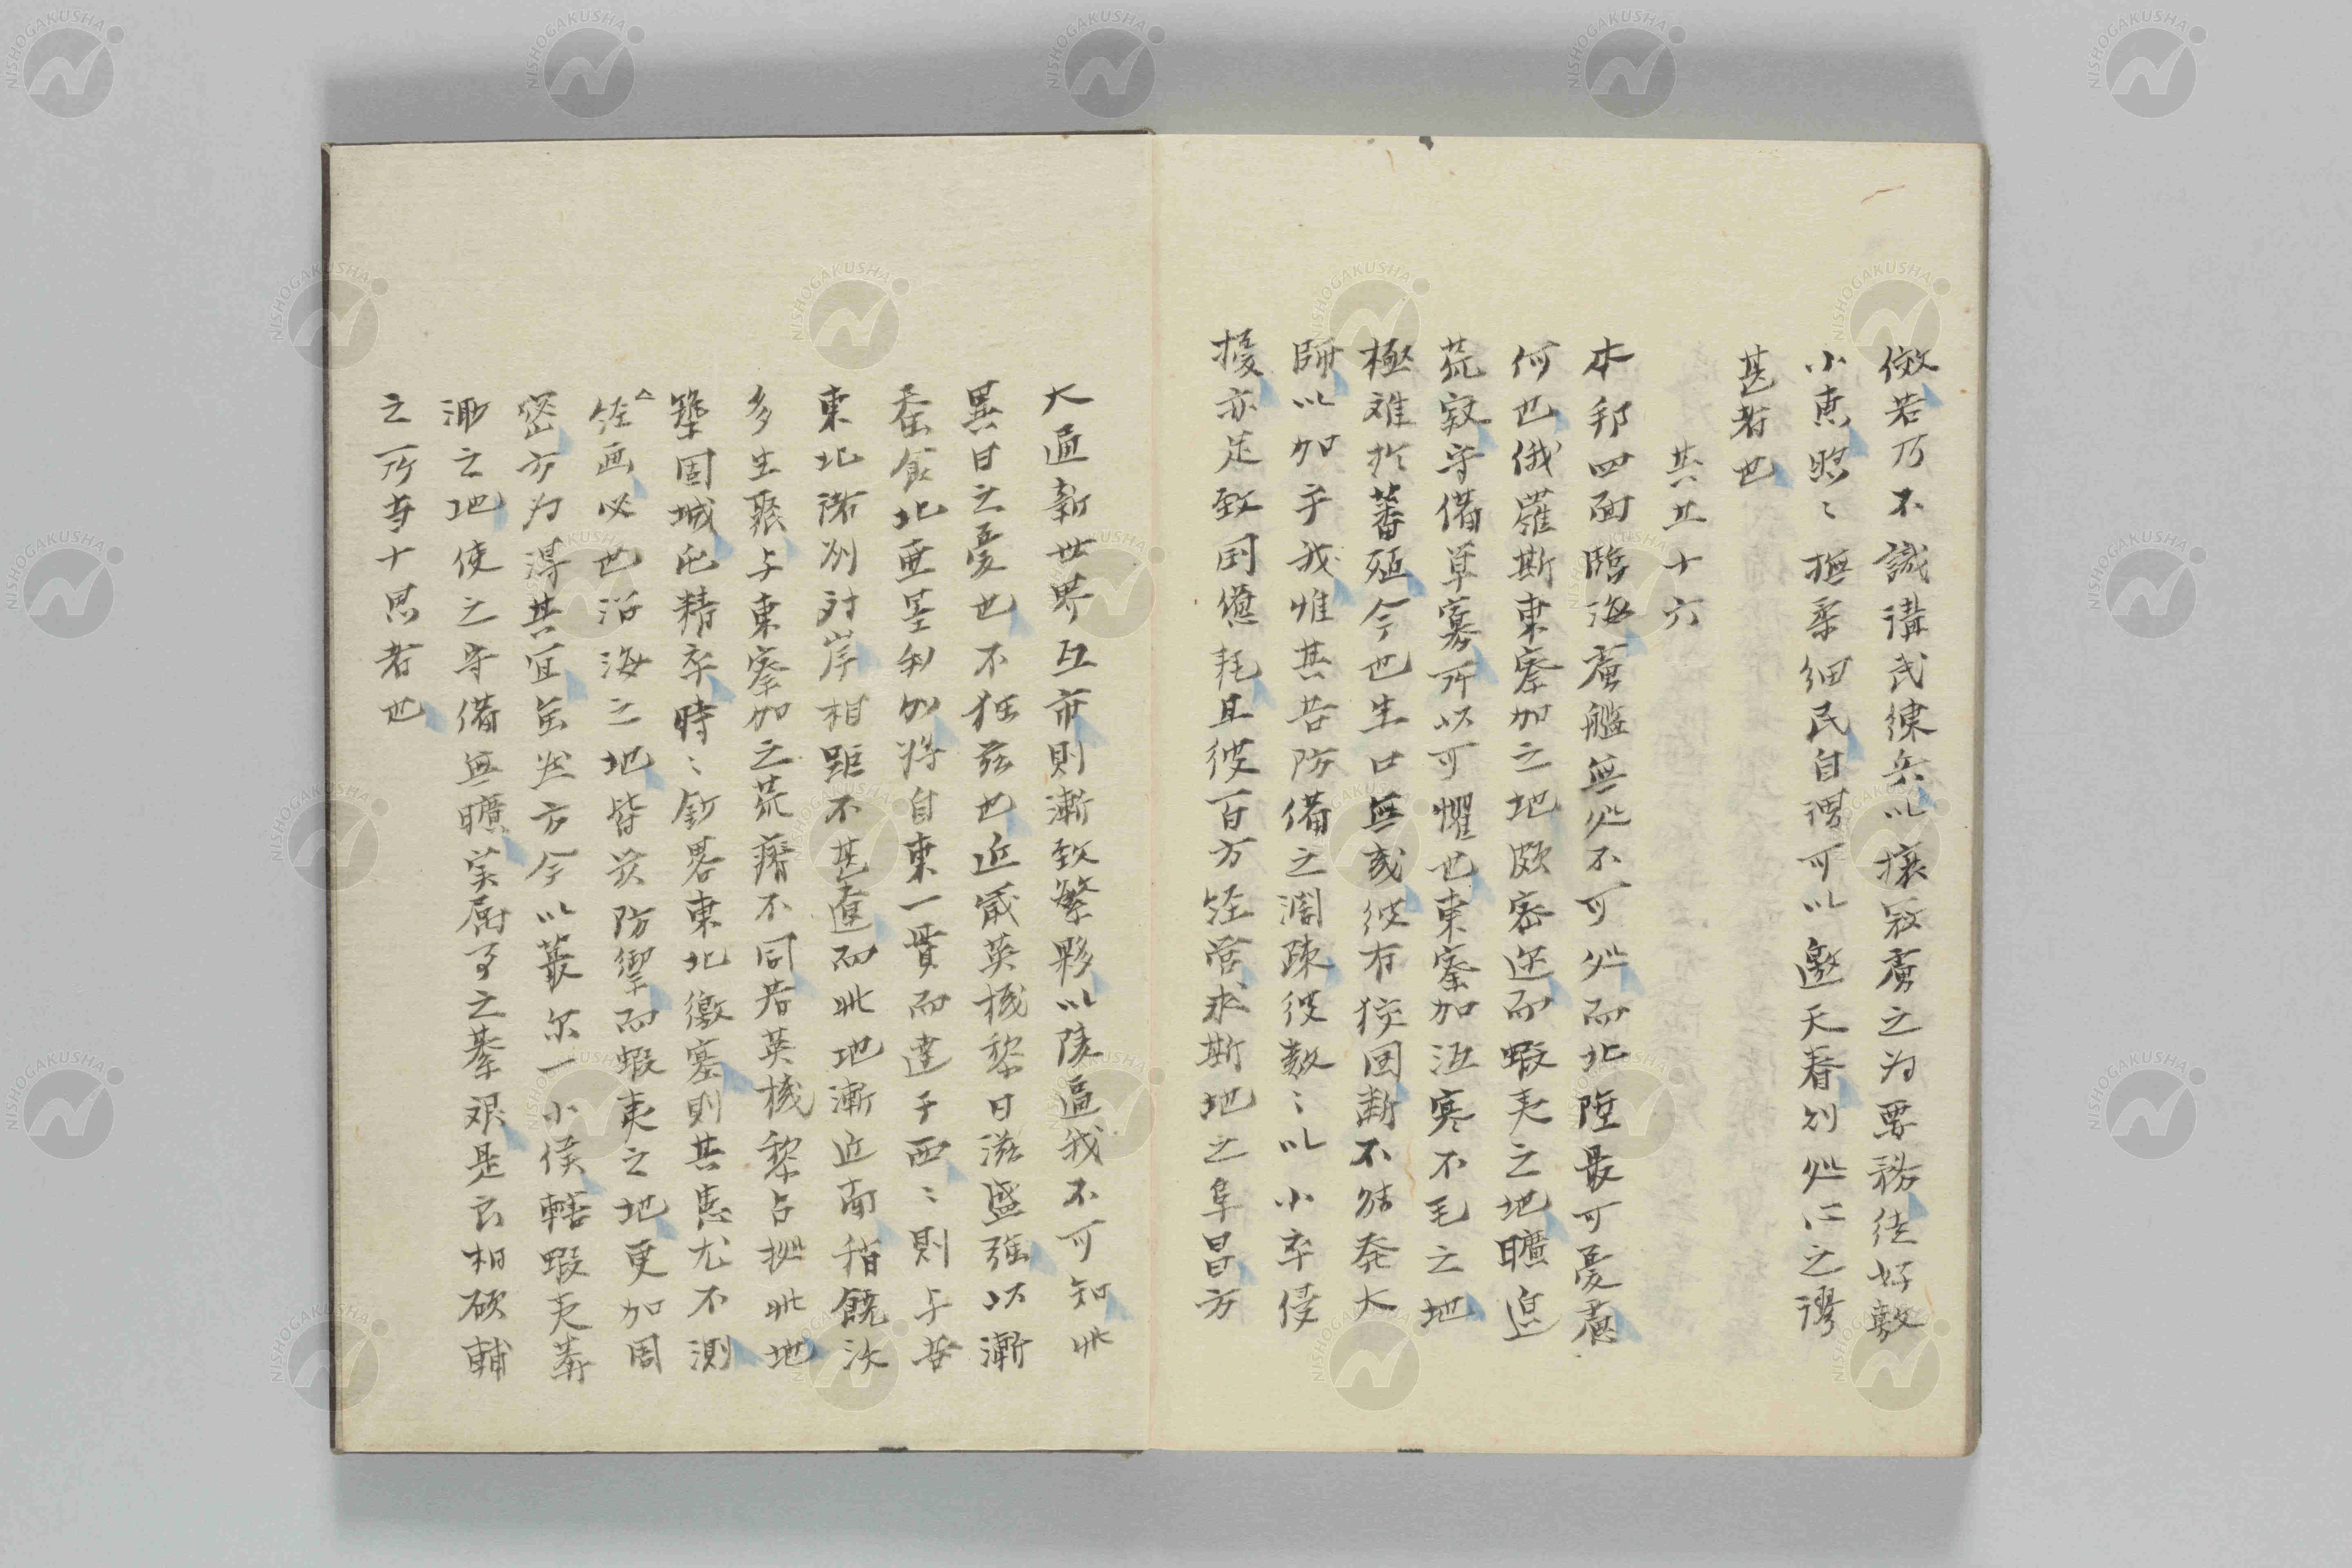 儆若乃不識溝民練兵以攘寇虜之为要務徒好敷
小恵煦〻撫柔細民自謂可以邀天眷則処心之謬
甚者也
其五十六
本邦四面臨海蛮艦無処不可処而北陸最可憂慮
何也俄羅斯東察加之地頗密迩而蝦夷之地曠迥
荒寂守備草寡所以可懼也東察加沍寒不毛之地
極难於蕃殖今也生口無或彼有狡図断不能泰大
師以加乎我惟其苦防備之濶疎彼数〻以小卒侵
擾亦足致国億耗且彼百方经营求斯地之阜昌方
大通新世界互市則漸致繁夥以陵逼我不可知此
異日之憂也不独茲也近歳英機黎日滋盛强以漸
蚕食北亜墨利加将自東一貫而達于西〻則与吾
東北諸州対岸相距不甚遼而此地漸近南稍饒沃
多生聚与東察加之荒瘠不同若英機黎占拠此地
築固城屯精卒時〻鈔畧東北徼塞則其患尤不測
经画必也沿海之地皆嚴防禦而蝦夷之地更加周
密方为得其宜虽然方今以蕞尔一小侯轄蝦夷莽
渺之地使之守備無曠実属事之綦艰是良相硕輔
之所寺十思者也